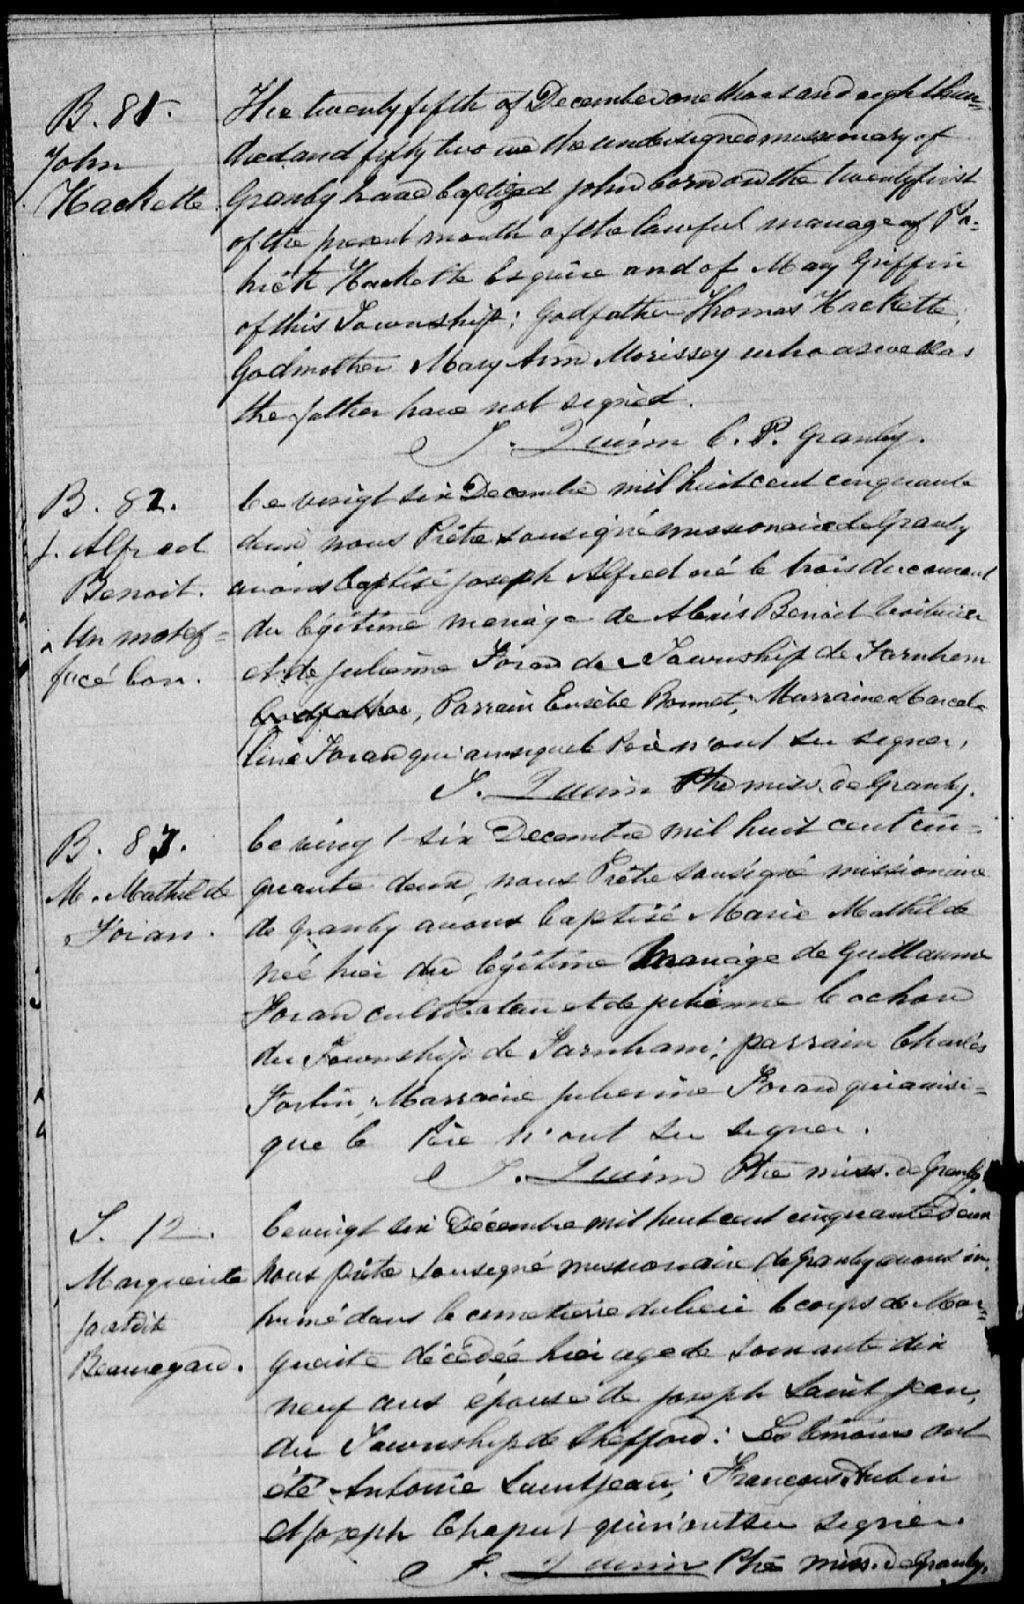 B. 81.
John
Hackette
The twenty fifth of December one thousand eight hun=
dred and fifty two we the undersigned missionary of
Granby have baptized john born on the twenty first
of the present month of the lawful mariage of Pa=
trick Hackette Esquire and of Mary Griffin
of this Township; Godfather Thomas Hackette,
Godmother Mary Ann Morissey who as well as
the father have not signed.
J. Quinn C. P. Granby.
B. 82.
J. Alfred
Benoit.
Un mot ef=
facé bon.
Le vingt six Decembre mil huit cent cinquante
deux nous Prêtre sousigné missionaire de Granby
avons baptisé joseph Alfred né le trois du courant
du légitime mariage de Alexis Benoit
et de julienne Foran de Township de Farnham
Godfather, Parrain Eusèbe Bonnet, Marraine Marcel=
line Foran qui ainsi que le Père n'ont su signer,
J. Quinn Ptre miss. de Granby.
B. 83.
M. Mathilde
Foran.
Le vingt six Decembre mil huit cent cin=
quante deux, nous Prêtre sousigné missionaire
de Granby avons baptisé Marie Mathilde
née hier du légitime mariage de Guillaume
Foran cultivateur et de julienne Cochon
du Township de Farnham; parrain Charles
Fortin, Marraine julienne Foran qui ainsi=
que le Père n'ont su signer.
J. Quinn Ptre miss. de Granby.
S. 12.
Marguerite
Beauregard.
Le vingt six Décembre mil huit cent cinquante deux
nous prêtre sousigné missionaire de Granby avons in
humé dans le cimetière du lieu le corps de Mar=
guerite décédée hier agée de soixante dix
neuf ans épouse de joseph Saint jean,
du Township de Shefford: Les témoins ont
été Antoine Saint jean, François Aubin
et joseph Chaput qui n'ont su signer.
J. Quinn Ptre miss. de Granby.